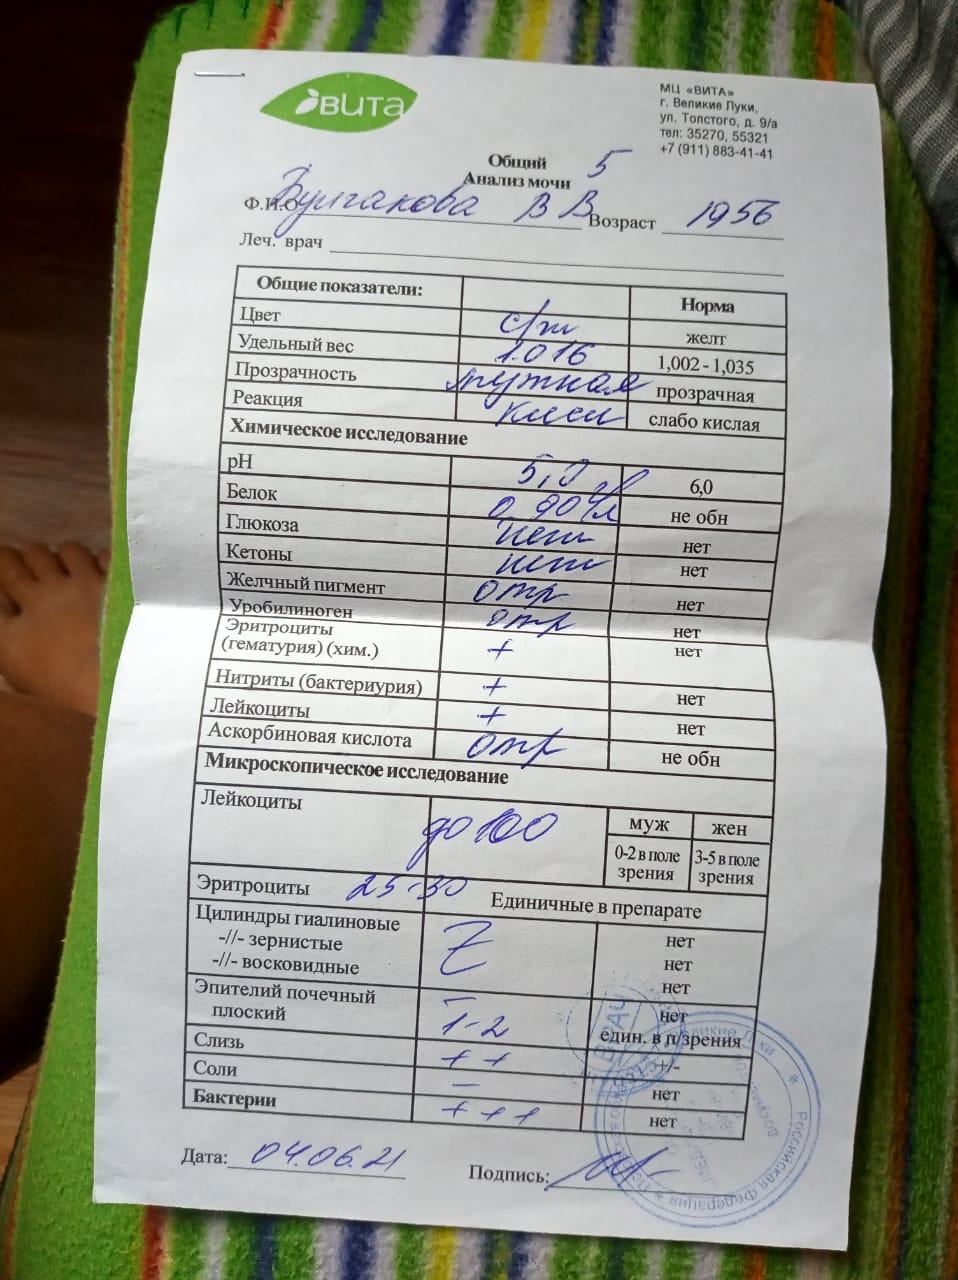 вита
МЦ «ВИТА»
г. Великие Луки,
ул. Толстого, д. 9/а
тел: 35270, 55321
+7 (911) 883-41-41
Общий 5
Анализ мочи
Ф.И.О. Булгакова В В Возраст 1956
Леч. врач
Общие показатели: Норма
Цвет с/ж желт
Удельный вес 1.016 1,002 - 1,035
Прозрачность мутная прозрачная
Реакция кисл слабо кислая
Химическое исследование
pH 5,0 6,0
Белок не обн
Глюкоза нет нет
Кетоны нет нет
Желчный пигмент отр нет
Уробилиноген отр нет
Эритроциты нет
(гематурия) (хим.) +
Нитриты (бактериурия) + нет
Лейкоциты + нет
Аскорбиновая кислота отр не обн
Микроскопическое исследование
Лейкоциты до 100 муж жен
0-2 в поле зрения 3-5 в поле зрения
Эритроциты 25-30 Единичные в препарате
Цилиндры гиалиновые нет
-//- зернистые нет
-//- восковидные нет
Эпителий почечный – нет
плоский 1-2 един. в п/зрения
Слизь + + +/-
Соли – нет
Бактерии + + + нет
Дата: 04.06.21 Подпись:
ВРАЧ
Великие Луки
Российская Федерация